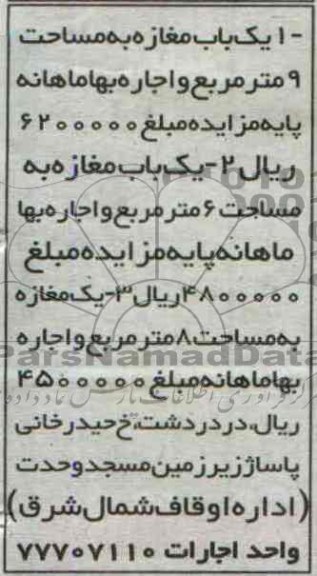 ۱- یک باب مغازه به مساحت
۹ متر مربع و اجاره بها ماهانه
پایه مزایده مبلغ ۶۲۰۰۰۰۰
ریال ۲- یک باب مغازه به
مساحت ۶ متر مربع و اجاره بها
ماهانه پایه مزایده مبلغ
۴۸۰۰۰۰۰ ریال ۳- یک مغازه
به مساحت ۸ متر مربع و اجاره
ParsNamadData
بها ماهانه مبلغ ۴۵۰۰۰۰۰
ریال، در دردشت، خ حیدرخانی
پاساژ زیرزمین مسجد وحدت
(اداره اوقاف شمال شرق)
واحد اجارات ۷۷۷۰۷۱۱۰